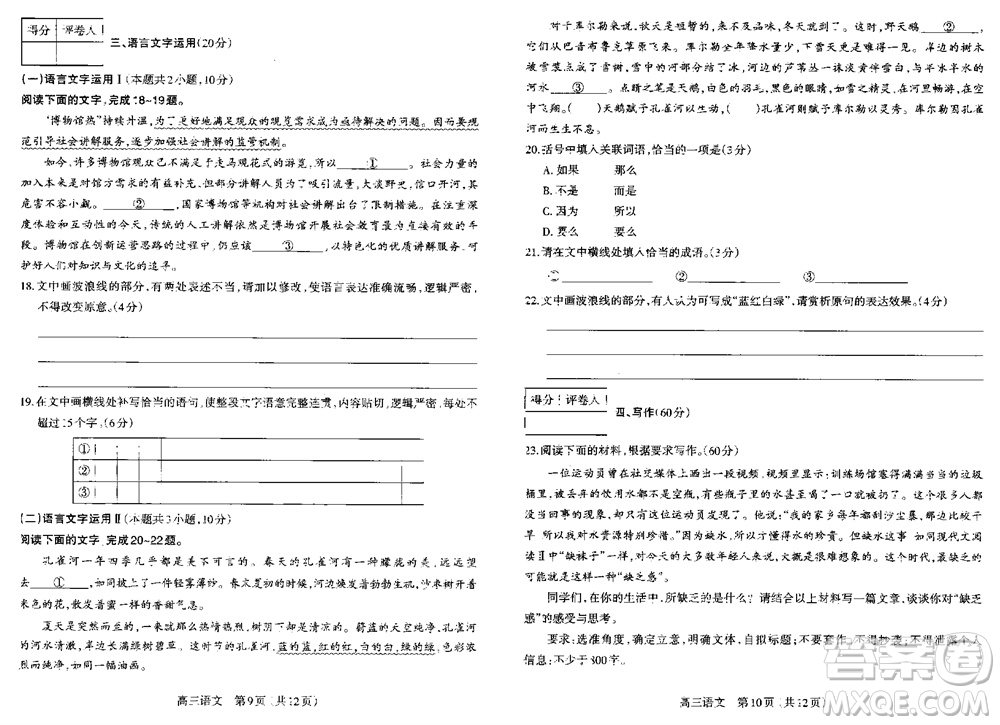 得分 评卷人
三、语言文字运用(20分)
(一)语言文字运用Ⅰ(本题共2小题,10分)
阅读下面的文字,完成18~19题。
“博物馆热”持续升温,为更好地满足观众的观览需求与亟待解决的问题。因而要规
范引导社会讲解服务,逐步加强社会讲解的监管机制。
如今,许多博物馆观众已不满足于走马观花式的游览,所以 ① 。社会力量的
加入本来是对馆方需求的有益补充,但部分讲解员为了吸引流量,大谈野史,信口开河,其
危害不容小觑。 ② ,国家博物馆等机构对讲解出台了限制措施。在注重深
度体验的今天,传统的人工讲解依然是博物馆开展社会教育最直接有效的手
段。博物馆在创新运营思路的过程中,仍应 ③ ,以特色化的优质讲解服务,呵
护好人们对知识与文化的追寻。
18.文中画波浪线的部分,有两处表述不当,请加以修改,使语言表达准确流畅,逻辑严密,
不得改变原意。(4分)
19.在文中画横线处补写恰当的语句,使整段文字语意完整连贯,内容贴切,逻辑严密,每处不
超过15个字。(6分)
①
②
③
(二)语言文字运用Ⅱ(本题共3小题,10分)
阅读下面的文字,完成20~22题。
孔雀河一年四季几乎都是美不可言的。春天的孔雀河有一种朦胧的美。远远望
去 ① ,似乎是披上了一件轻雾薄纱。春末夏初的时候,河边焕发着勃勃生机,沙枣树开着
米色的花,散发着蜜一样的香甜气息。
夏天是突然而至的,太阳是火热的,而河边却是清凉的。蔚蓝的天空下,孔雀河
的河水清澈,岸上长满绿树碧草。这时节的孔雀河,蓝的蓝,红的红,白的白,绿的绿,
色彩浓烈而纯净,如同一幅油画。
高三语文 第9页(共12页)
对于库尔勒来说,秋天是短暂的,来不及品味,冬天就到了。这时,野天鹅 ②
地从巴音布鲁克草原飞来。库尔勒全年降水量少,下雪天更是屈指可数。岸边的树木
被雪装点的素雅,雪中的河安静温柔,河边的芦苇丛一片温柔的金黄色,与半冰半水的
河水 ③ 。点睛之笔就是天鹅,白色的羽毛,美丽的身影,如雪之精灵,在河里畅游,在
空中飞翔。( )天鹅赋予孔雀河以生动,( )孔雀河则赋予库尔勒以灵秀。库尔勒因孔雀
河而生动无比。
20.括号中填入关联词语,恰当的一项是(3分)
A.如果 那么
B.不是 而是
C.因为 所以
D.要么 要么
21.请在文中横线处填入恰当的成语。(3分)
① ② ③
22.文中画波浪线的部分,有人认为可写成“蓝红白绿”,请赏析原句的表达效果。(4分)
得分 评卷人
四、写作(60分)
23.阅读下面的材料,根据要求写作。(60分)
一位运动员曾在社交媒体上晒出一段视频,视频里显示:训练场馆塞得满满当当的垃圾
桶里,被丢弃的饮用水都不是空瓶,有些瓶子里的水甚至喝了一口就被扔了。这件很多人
习以为常的现象,引起了这位运动员的关注。他说:“我的家乡每年都有沙尘暴,一年到头干
旱少雨,我对水资源特别珍惜。”没有缺过水的人不懂得水的珍贵。但缺水这事,如同现代文阅
读Ⅱ中“缺袜子”一事,对今天的大多数年轻人来说,大概是很难想象的。这世上最缺乏的
可能就是对缺乏的感受,它是一种“缺乏感”。
同学们,在你的生活中,所缺乏的是什么?请结合以上材料写一篇文章,谈谈你对“缺乏
感”的感受与思考。
要求:选准角度,确定立意,明确文体,自拟标题;不要套作,不得抄袭;不得泄露个人
信息;不少于800字。
高三语文 第10页(共12页)
答案圈
MXQE.COM